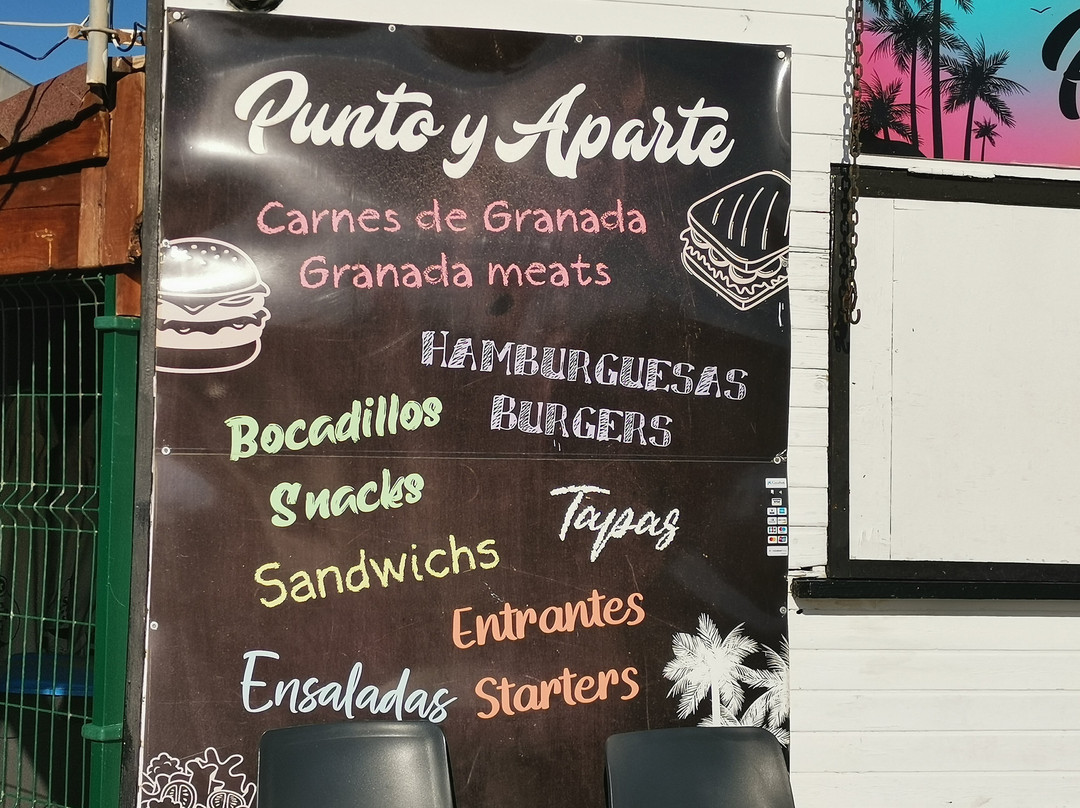 Punto y Aparte
Carnes de Granada
Granada meats
HAMBURGUESAS
BURGERS
Bocadillos
Snacks
Tapas
Sandwichs
Entrantes
Starters
Ensaladas